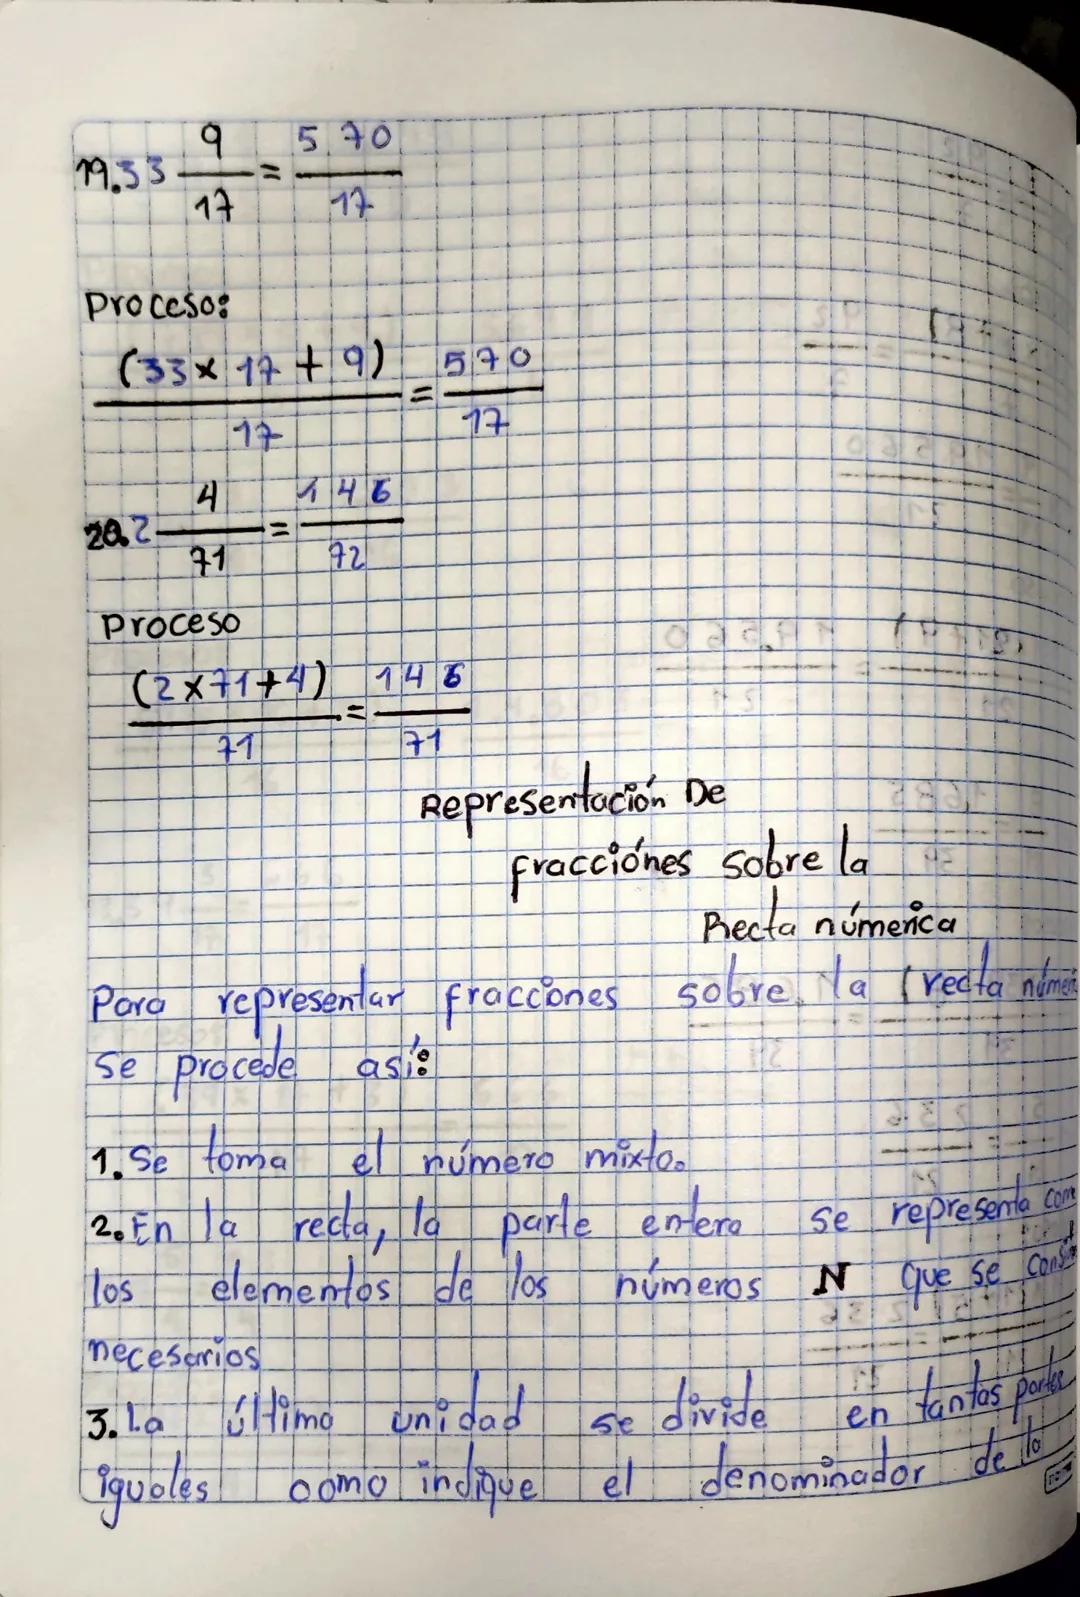 19. 33 9/17 = 570/17
Proceso:
(33 x 17 + 9)/17 = 570/17
20. 2 4/71 = 146/72
Proceso
(2 x 71 + 4)/71 = 146/71
Representación De
fracciónes sobre la
Recta númerica
Para representar fracciones sobre la recta
se procede así:
1. Se toma el número mixto.
2. En la recta, la parte entera se representa
los elementos de los números N que se
necesarios
3. La última unidad se divide en tantas partes
iguales como indique el denominador de la